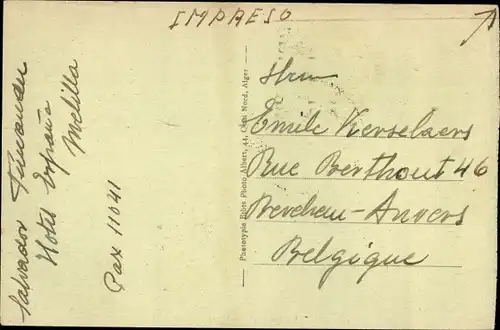 IMPRESO
Salvador Fernandez
Hotel España
Melilla
Pax 11041
Phototypie Etbts Photo Albert, 44, Quai Nord, Alger
Hrn
Emile Kerselaers
Rue Berthout 46
Berchem-Anvers
Belgique